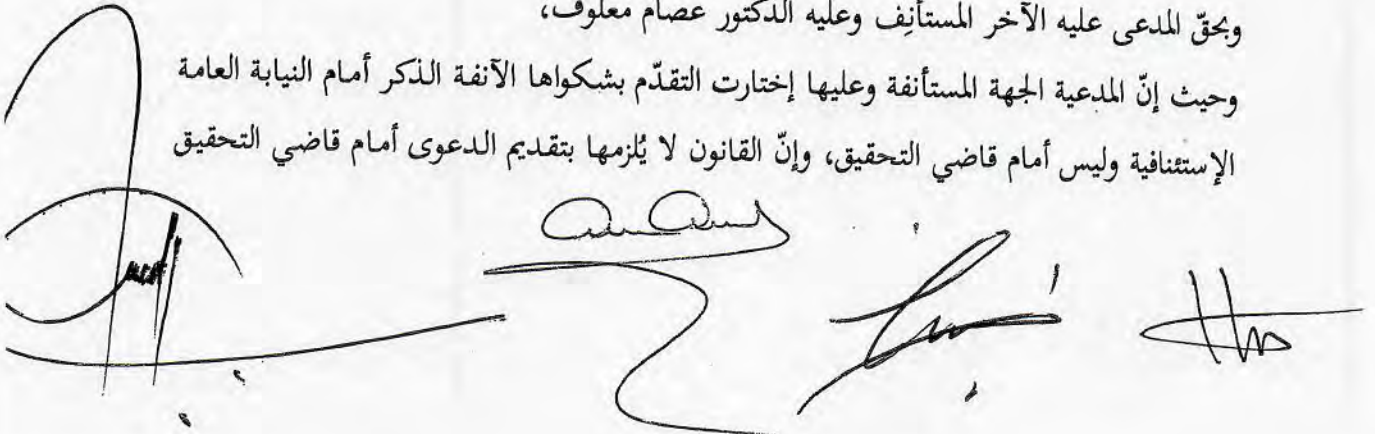 وبحقّ المدعى عليه الآخر المستأنِف وعليه الدكتور عصام معلوف،
وحيث إنّ المدعية الجهة المستأنفة وعليها إختارت التقدّم بشكواها الآنفة الذكر أمام النيابة العامة
الإستئنافية وليس أمام قاضي التحقيق، وإنّ القانون لا يُلزمها بتقديم الدعوى أمام قاضي التحقيق